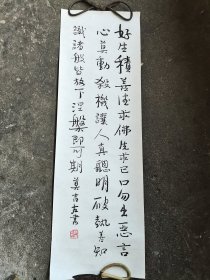 好生積善德求佛先求己口勿出惡言
心莫動殺機讓人真聰明破執善知
識諸般皆放下涅槃即可期 莫言左書